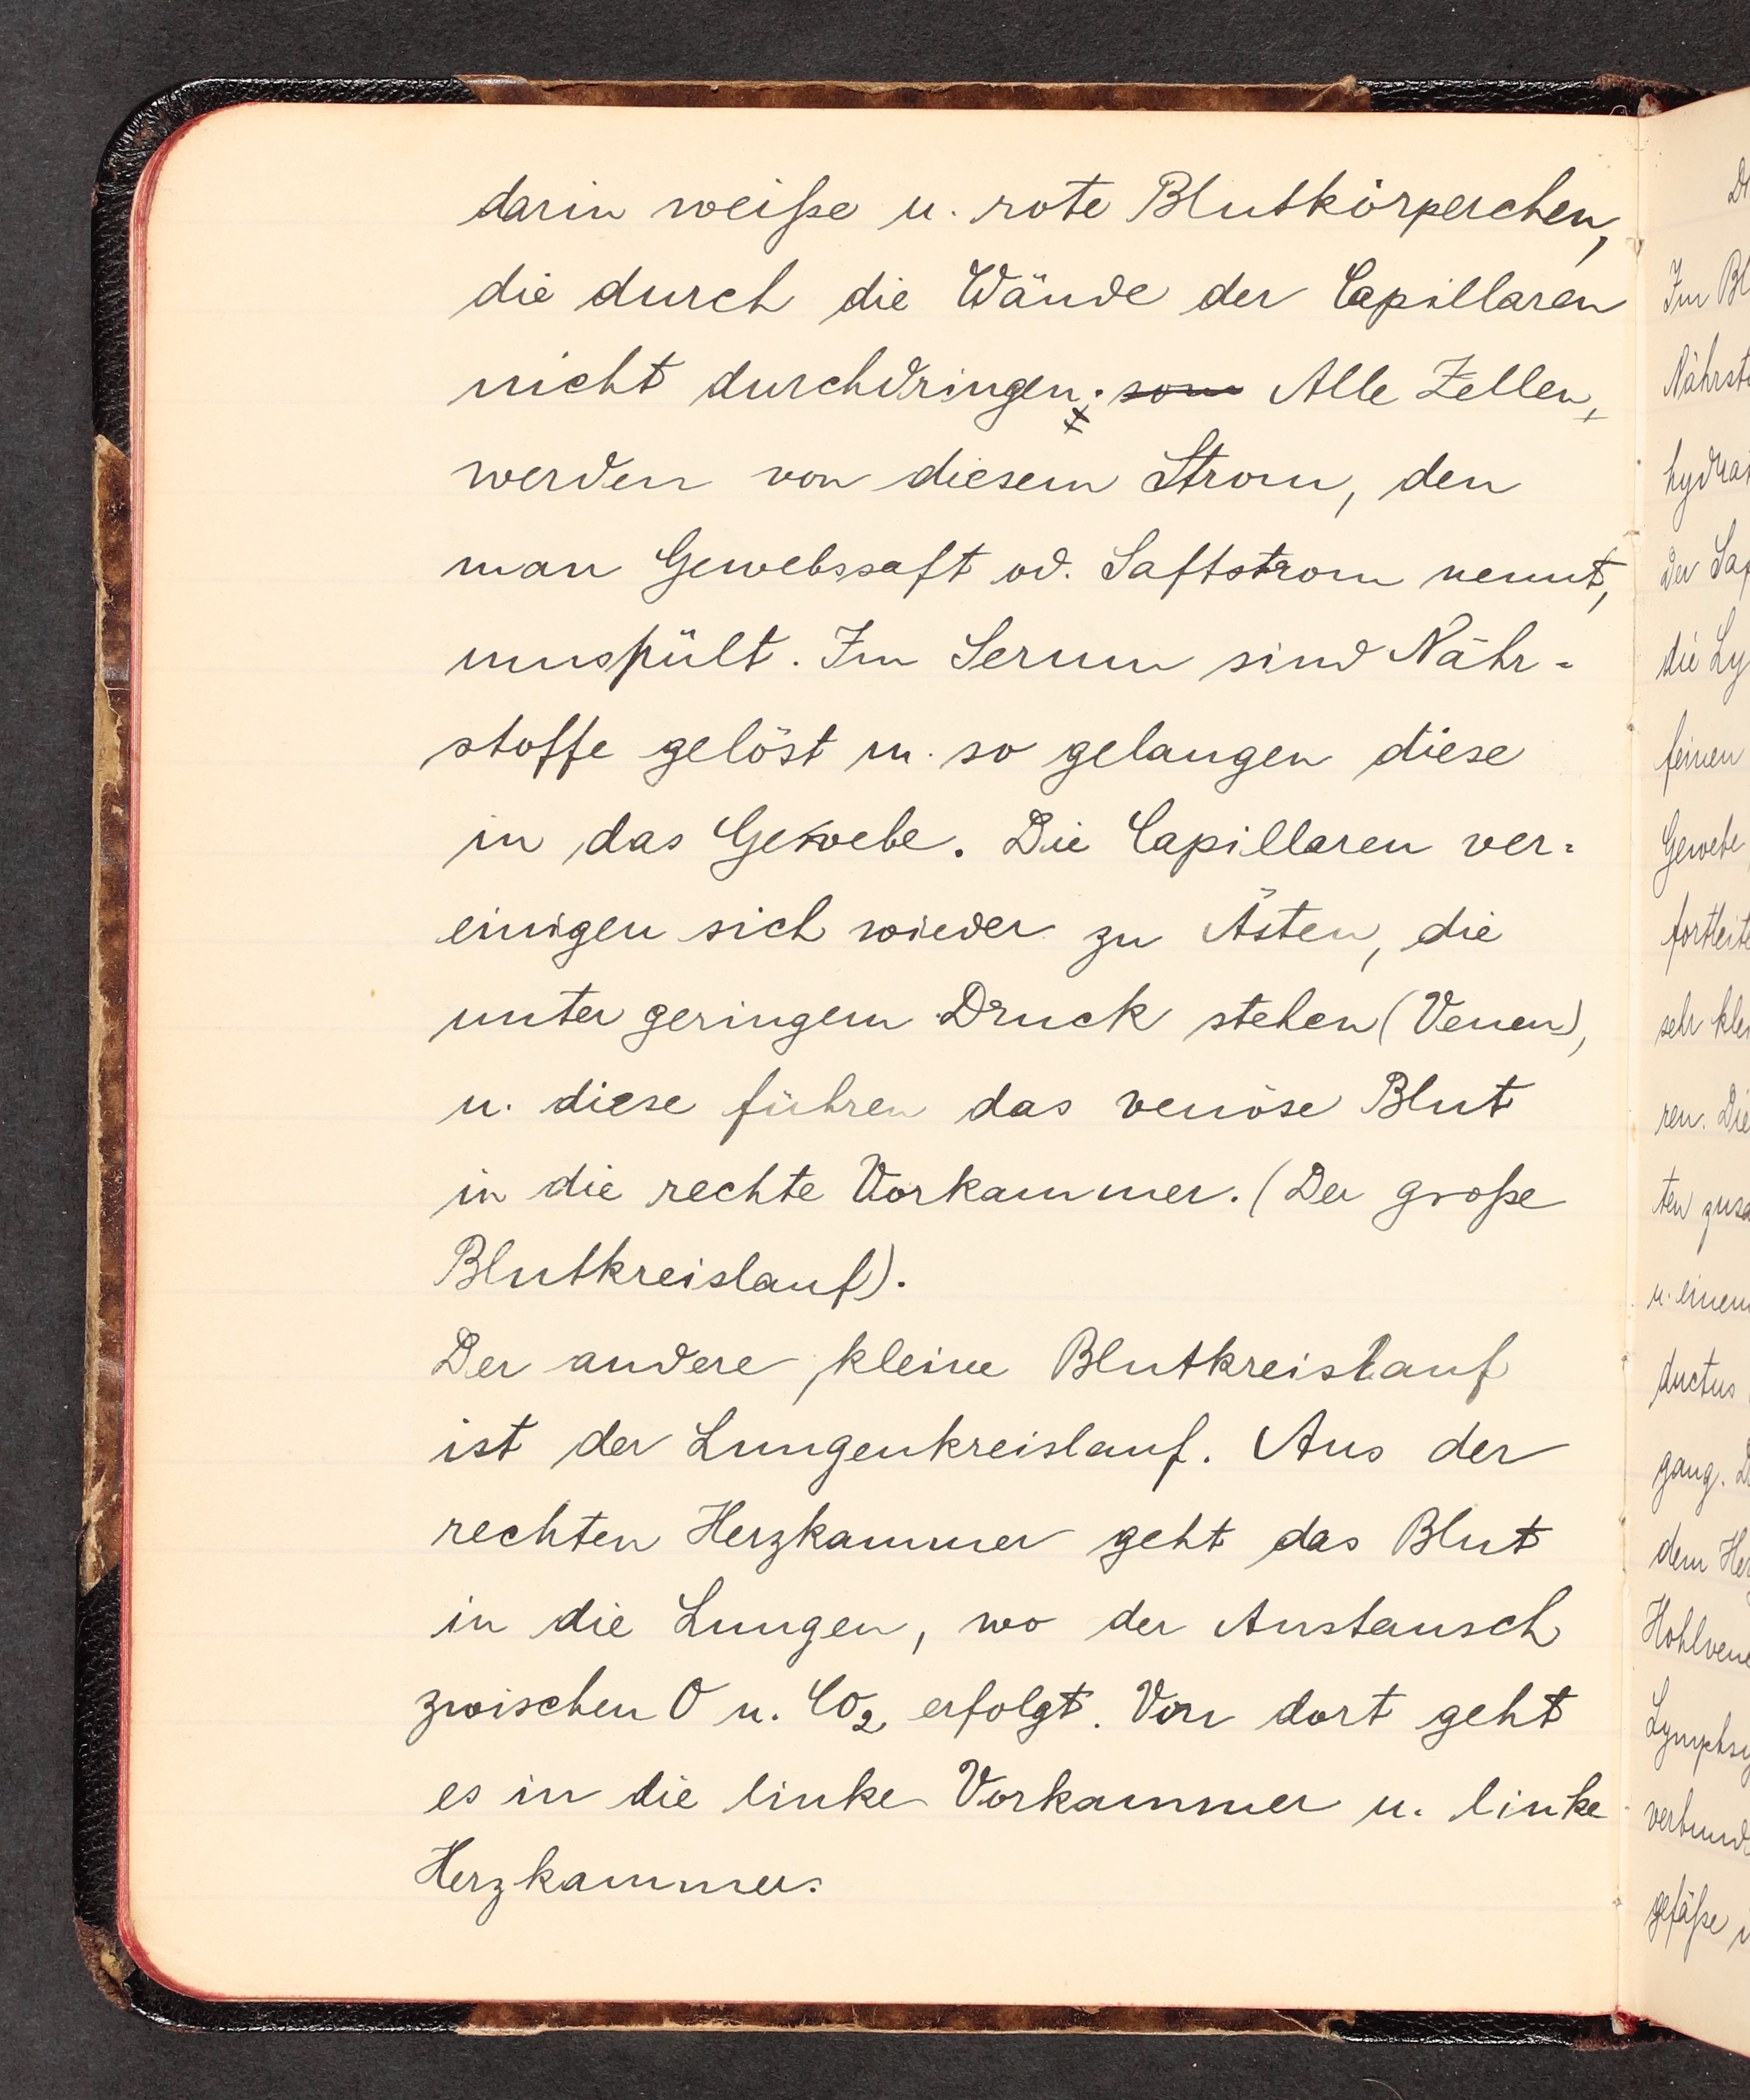 darin weiße u. rote Blutkörperchen,
die durch die Wände der Capillaren
nicht durchdringen. som Alle Zellen,
werden von diesem Strom, den
man Gewebssaft od. Saftstrom nennt,
umspült. Im Serum sind Nähr-
stoffe gelöst u. so gelangen diese
in das Gewebe. Die Capillaren ver-
einigen sich wieder zu Ästen, die
unter geringem Druck stehen (Venen),
u. diese führen das venöse Blut
in die rechte Vorkammer. (Der große
Blutkreislauf).
Der andere kleine Blutkreislauf
ist der Lungenkreislauf. Aus der
rechten Herzkammer geht das Blut
in die Lungen, wo der Austausch
zwischen O u. CO2 erfolgt. Von dort geht
es in die linke Vorkammer u. linke
Herzkammer.
Im Bl
Nährst
hydrat
der Saf
die Ly
feinen
Gewebe
fortleite
sehr klei
ren. Die
ten zusa
u. einem
ductus
gang. D
dem Her
Hohlvene
Lymphsy
verbund
gefäße